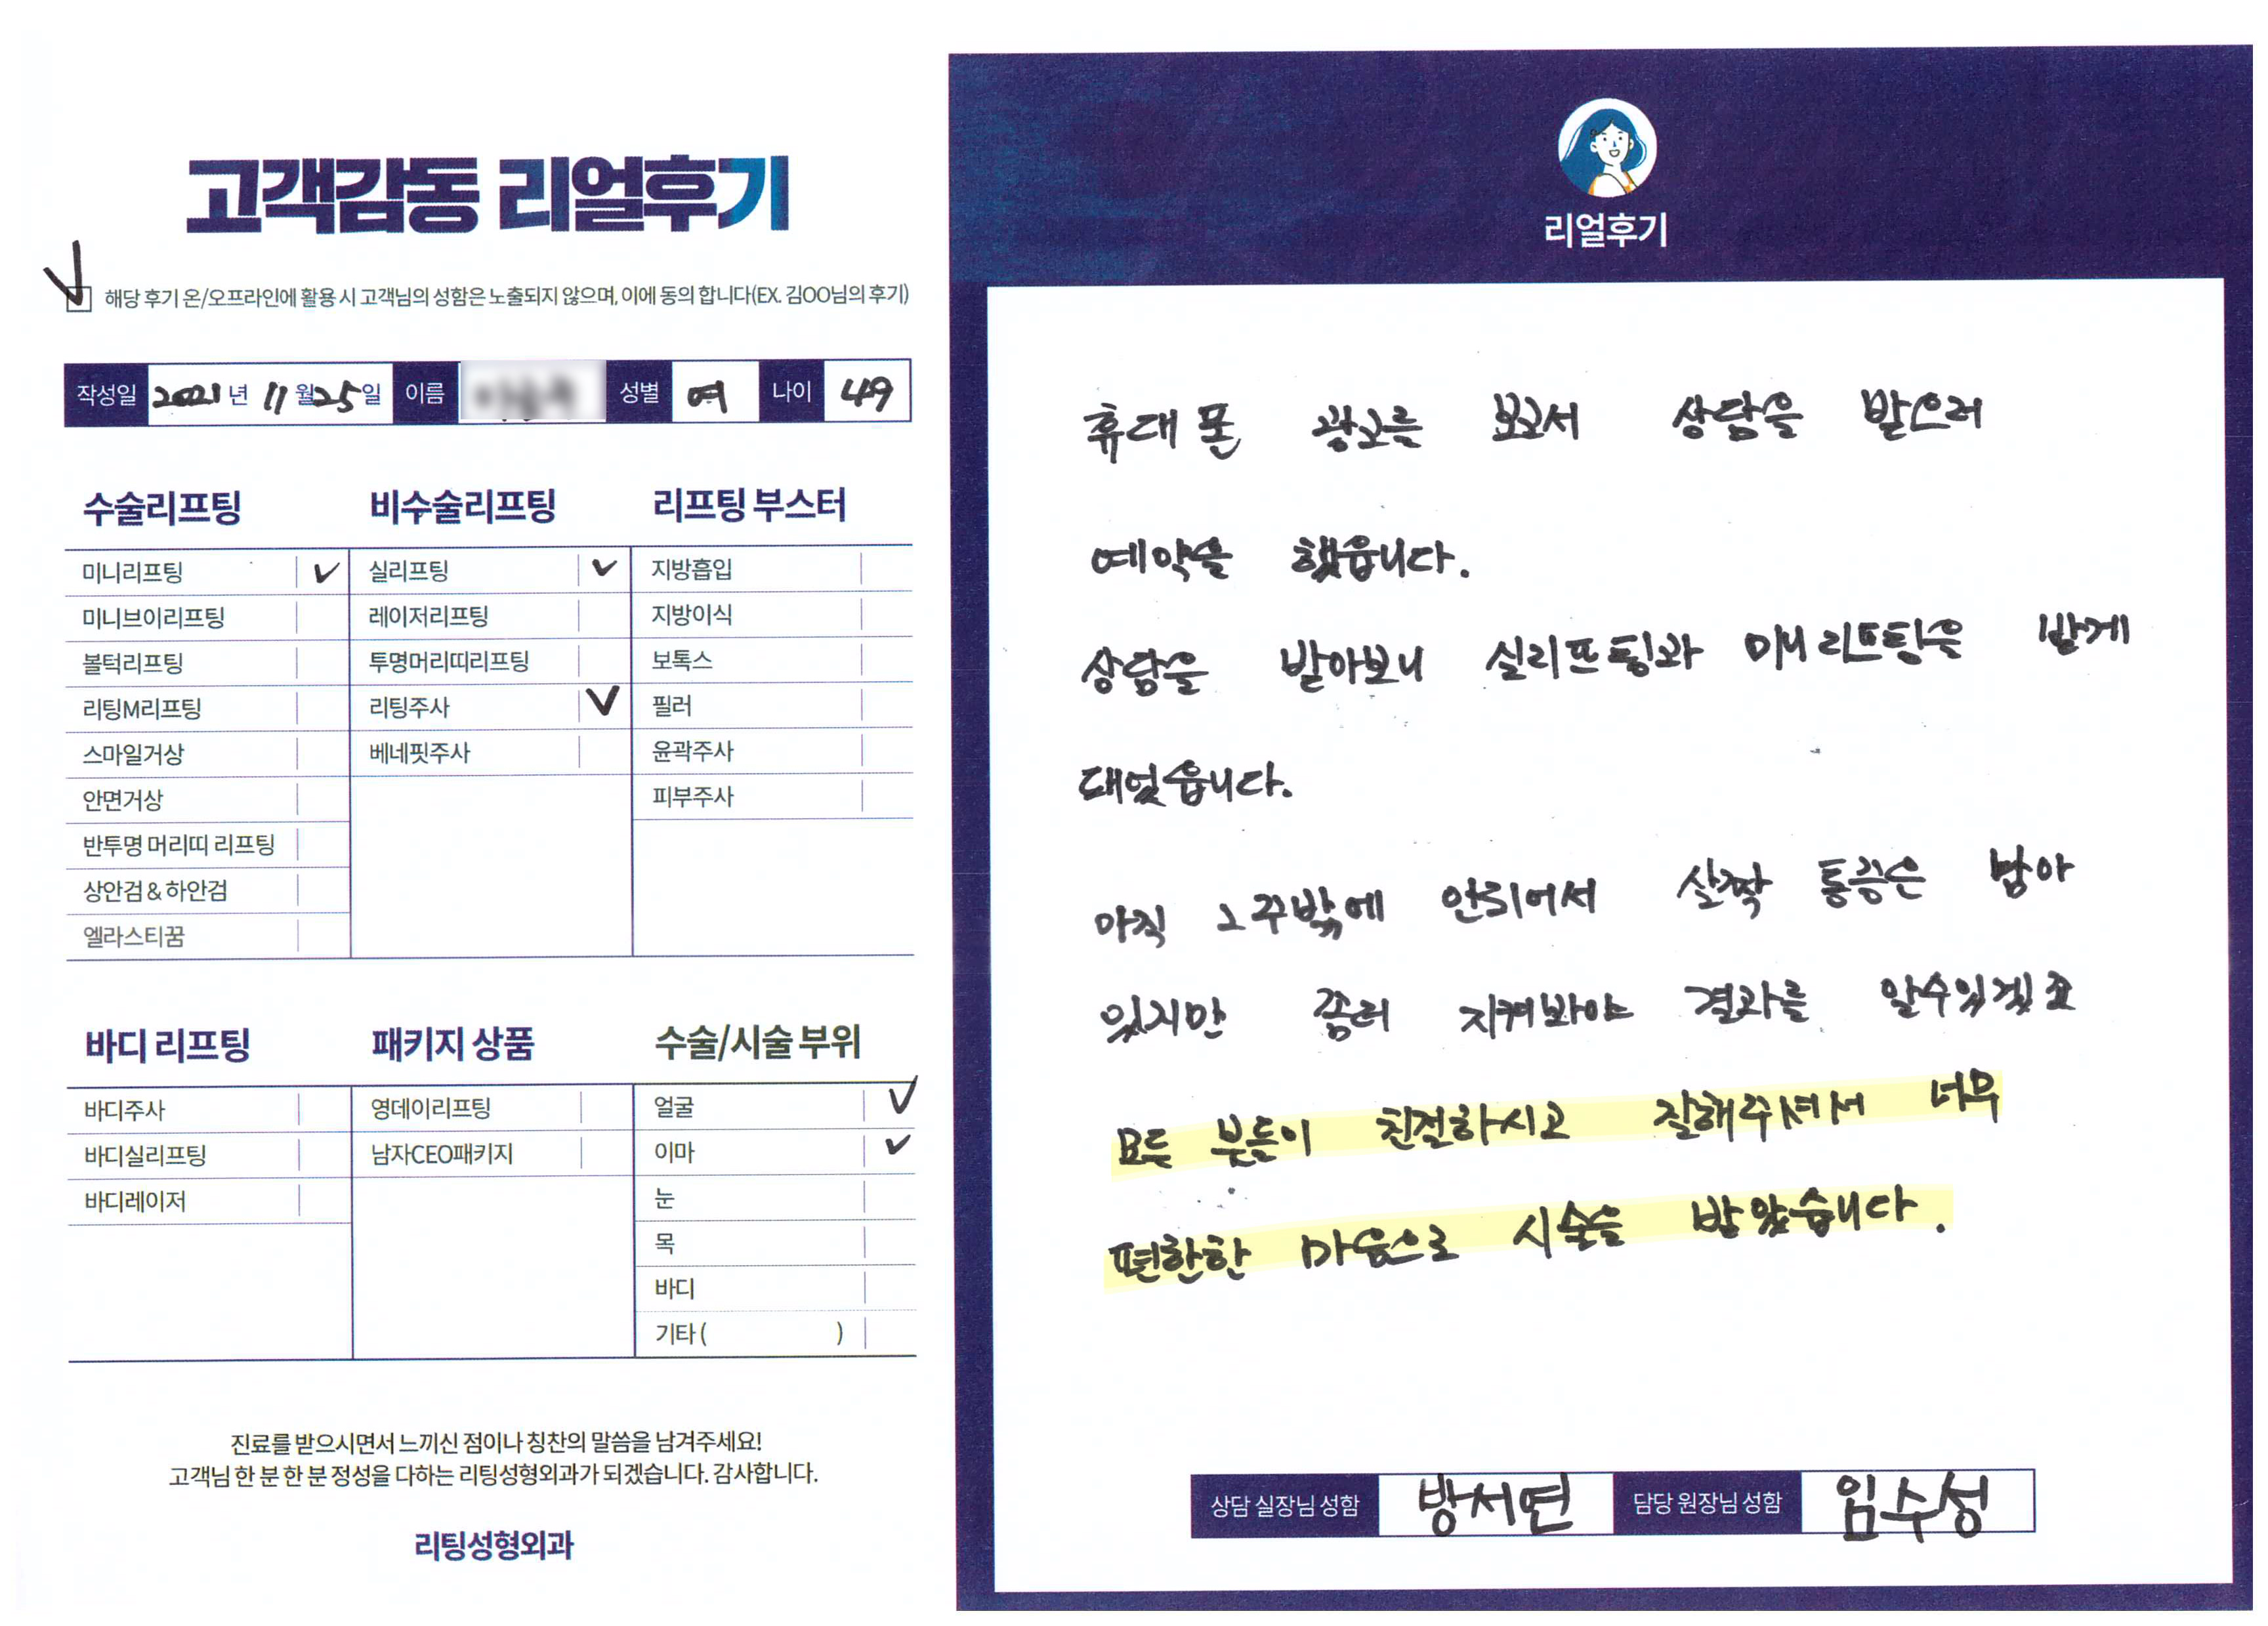 고객감동 리얼후기
해당 후기 온/오프라인에 활용 시 고객님의 성함은 노출되지 않으며, 이에 동의 합니다(EX. 김OO님의 후기)
작성일 2021년 11월 25일 이름 성별 여 나이 49
수술리프팅 비수술리프팅 리프팅 부스터
미니리프팅 ✓ 실리프팅 ✓ 지방흡입
미니브이리프팅 레이저리프팅 지방이식
볼턱리프팅 투명머리띠리프팅 보톡스
리팅M리프팅 리팅주사 ✓ 필러
스마일거상 베네핏주사 윤곽주사
안면거상 피부주사
반투명 머리띠 리프팅
상안검 & 하안검
엘라스티꿈
바디 리프팅 패키지 상품 수술/시술 부위
바디주사 영데이리프팅 얼굴 ✓
바디실리프팅 남자CEO패키지 이마 ✓
바디레이저 눈
목
바디
기타 ( )
진료를 받으시면서 느끼신 점이나 칭찬의 말씀을 남겨주세요!
고객님 한 분 한 분 정성을 다하는 리팅성형외과가 되겠습니다. 감사합니다.
리팅성형외과
리얼후기
휴대폰 광고를 보고서 상담을 받으러
예약을 했읍니다.
상담을 받아보니 실리프팅과 미니리프팅을 받게
대었읍니다.
아직 2주밖에 안되어서 살짝 통증은 남아
있지만 좀더 지켜봐야 결과를 알수있겠죠
모든 분들이 친절하시고 잘해주셔서 너무
편한한 마음으로 시술을 받았습니다.
상담 실장님 성함 방서연 담당 원장님 성함 임수성